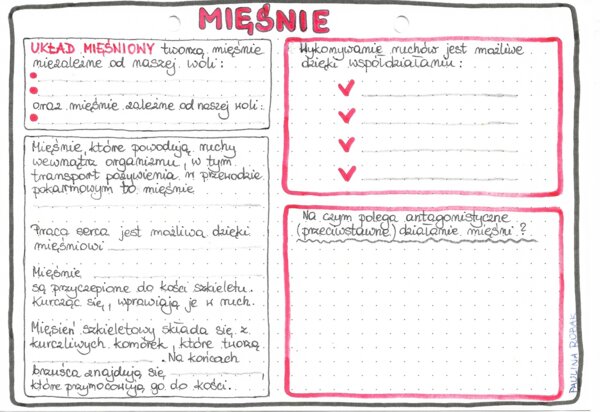 MIĘŚNIE
UKŁAD MIĘŚNIOWY tworzą mięśnie
niezależne od naszej woli:
oraz mięśnie zależne od naszej woli:
Mięśnie, które powodują ruchy
wewnątrz organizmu, w tym
transport pożywienia w przewodzie
pokarmowym to mięśnie
Praca serca jest możliwa dzięki
mięśniowi
Mięśnie
są przyczepione do kości szkieletu.
Kurcząc się, wprawiają je w ruch.
Mięsień szkieletowy składa się z
kurczliwych komórek, które tworzą
. Na końcach
brzuśca znajdują się ,
które przymocowują go do kości.
Wykonywanie ruchów jest możliwe
dzięki współdziałaniu:
Na czym polega antagonistyczne
(przeciwstawne) działanie mięśni?
PAULINA BOBAK